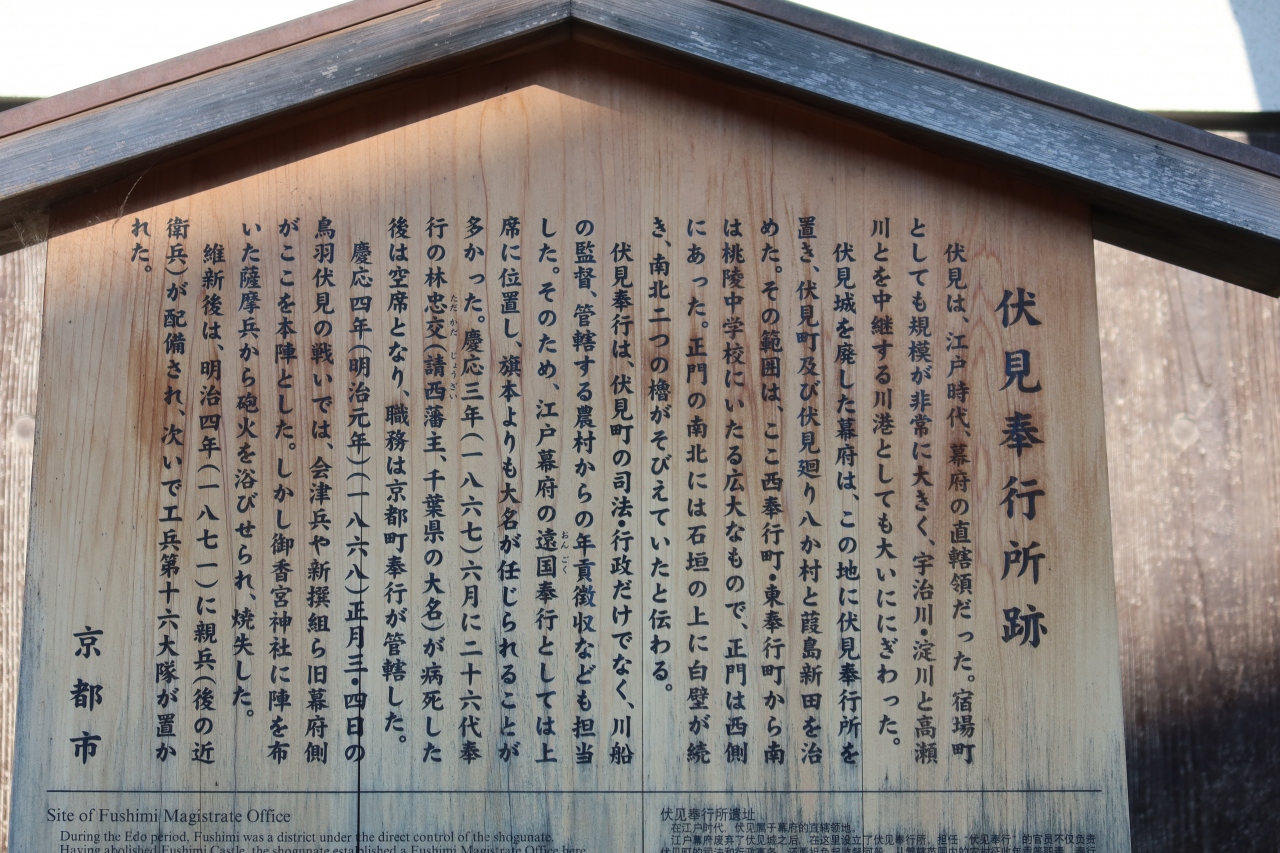 伏見奉行所跡
伏見は、江戸時代、幕府の直轄領だった。宿場町
としても規模が非常に大きく、宇治川・淀川と高瀬
川とを中継する川港としても大いににぎわった。
伏見城を廃した幕府は、この地に伏見奉行所を
置き、伏見町及び伏見廻り八か村と葭島新田を治
めた。その範囲は、ここ西奉行町・東奉行町から南
は桃陵中学校にいたる広大なもので、正門は西側
にあった。正門の南北には石垣の上に白壁が続
き、南北二つの櫓がそびえていたと伝わる。
伏見奉行は、伏見町の司法・行政だけでなく、川船
の監督、管轄する農村からの年貢徴収なども担当
した。そのため、江戸幕府の遠国奉行としては上
おんごく
席に位置し、旗本よりも大名が任じられることが
多かった。慶応三年(一八六七)六月に二十六代奉
行の林忠交(請西藩主、千葉県の大名)が病死した
ただかた じょうざい
後は空席となり、職務は京都町奉行が管轄した。
慶応四年(明治元年)(一八六八)正月三・四日の
鳥羽伏見の戦いでは、会津兵や新撰組ら旧幕府側
がここを本陣とした。しかし御香宮神社に陣を布
いた薩摩兵から砲火を浴びせられ、焼失した。
維新後は、明治四年(一八七一)に親兵(後の近
衛兵)が配備され、次いで工兵第十六大隊が置か
れた。
京都市
Site of Fushimi Magistrate Office
During the Edo period, Fushimi was a district under the direct control of the shogunate.
Having abolished Fushimi Castle, the shogunate established a Fushimi Magistrate Office here
伏见奉行所遗址
在江户时代，伏见属于幕府的直辖领地。
江户幕府废弃了伏见城之后，在这里设立了伏见奉行所。担任“伏见奉行”的官员不仅负责